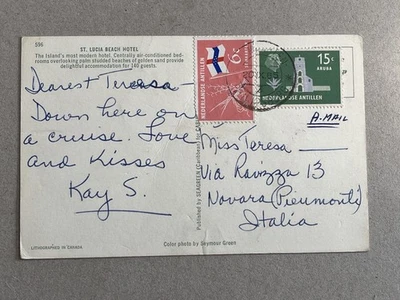 596
ST. LUCIA BEACH HOTEL
The Island's most modern hotel. Centrally air-conditioned bed-
rooms overlooking palm studded beaches of golden sand provide
delightful accommodation for 160 guests.
6c
NEDERLANDSE ANTILLEN
15c
ARUBA
NEDERLANDSE ANTILLEN
A-MAIL
Dearest Teresa-
Down here on
a cruise. Love
and Kisses
Kay S.
Miss Teresa —
Via Ravizza 13
Novara (Piemonte)
Italia
Published by SEAGREEN (Caribbean)
LITHOGRAPHED IN CANADA
Color photo by Seymour Green